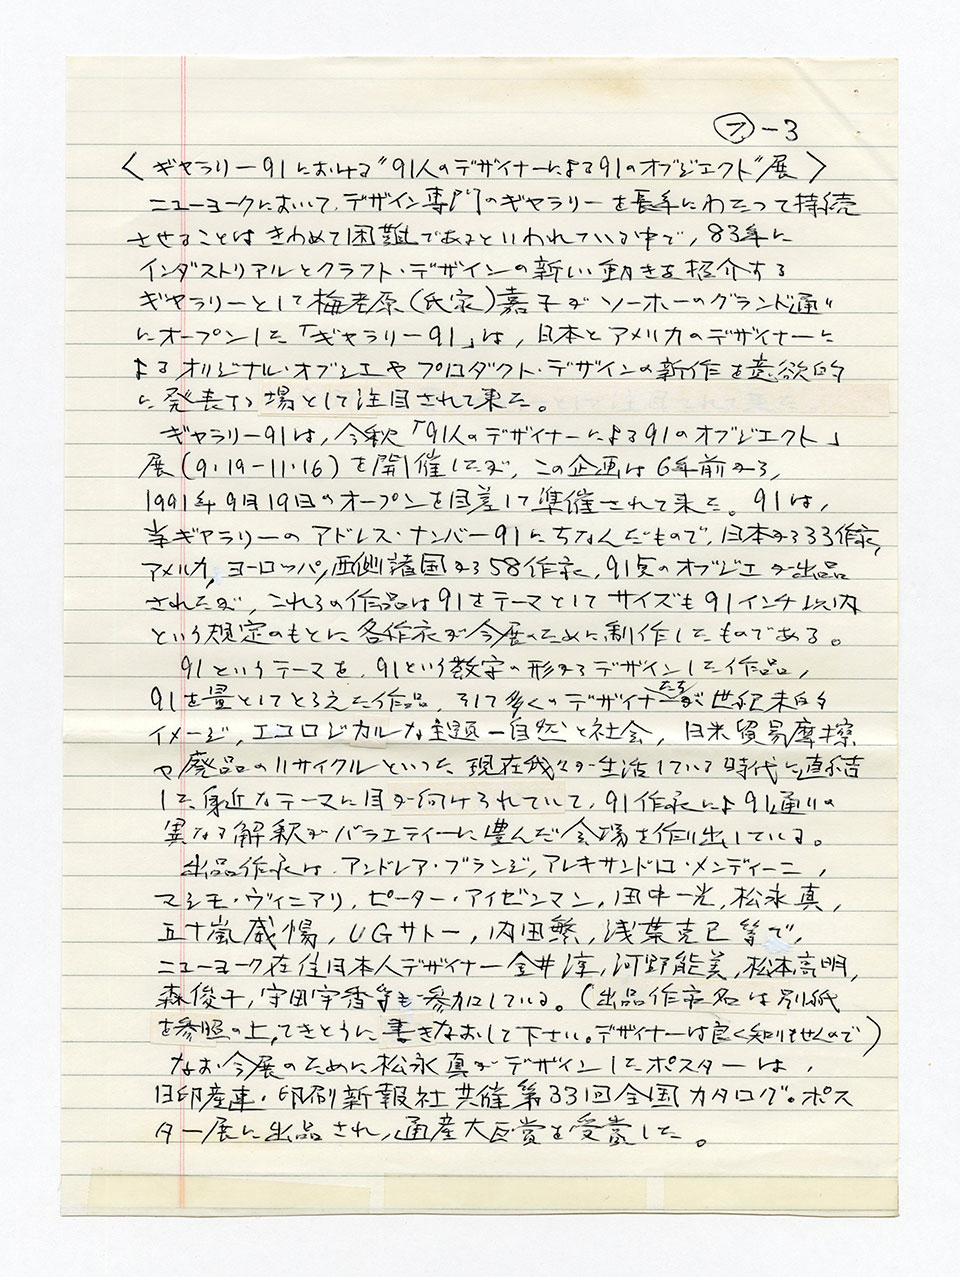 フ-3
〈ギャラリー91における"91人のデザイナーによる91のオブジェクト"展〉
ニューヨークにおいて、デザイン専門のギャラリーを長年にわたって持続
させることはきわめて困難であるといわれている中で、83年に
インダストリアルとクラフト・デザインの新しい動きを紹介する
ギャラリーとして梅老原(氏家)嘉子がソーホーのグランド通り
にオープンした「ギャラリー91」は、日本とアメリカのデザイナーに
よるオリジナル・オブジェやプロダクト・デザインの新作を意欲的
に発表する場として注目されて来た。
ギャラリー91は、今秋「91人のデザイナーによる91のオブジェクト」
展(9・19-11・16)を開催したが、この企画は6年前から、
1991年9月19日のオープンを目差して準備されて来た。91は、
当ギャラリーのアドレス・ナンバー91にちなんだもので、日本から33作家、
アメリカ、ヨーロッパ、西側諸国から58作家、91点のオブジェが出品
されたが、これらの作品は91をテーマとしてサイズも91インチ以内
という規定のもとに各作家が今展のために制作したものである。
91というテーマを、91という数字の形からデザインした作品、
91を量としてとらえた作品、そして多くのデザイナーたちが世紀末的
イメージ、エコロジカルな主題-自然と社会、日米貿易摩擦
や廃品のリサイクルといった現在我々が生活している時代に直結
した身近なテーマに目が向けられていて、91作家による91通りの
異なる解釈がバラエティーに豊んだ会場を作り出している。
出品作家は、アンドレア・ブランジ、アレキサンドロ・メンディーニ、
マシモ・ヴィニアリ、ピーター・アイゼンマン、田中一光、松永真、
五十嵐威暢、UGサトー、内田繁、浅葉克己等で、
ニューヨーク在住日本人デザイナー金井淳、河野能美、松本高明、
森俊子、宇田宇香等も参加している。(出品作家名は別紙
を参照の上、てきとうに書きなおして下さい。デザイナーは良く知りませんので)
なお今展のために松永真がデザインしたポスターは、
日印産連・印刷新報社共催第33回全国カタログ・ポス
ター展に出品され、通産大臣賞を受賞した。